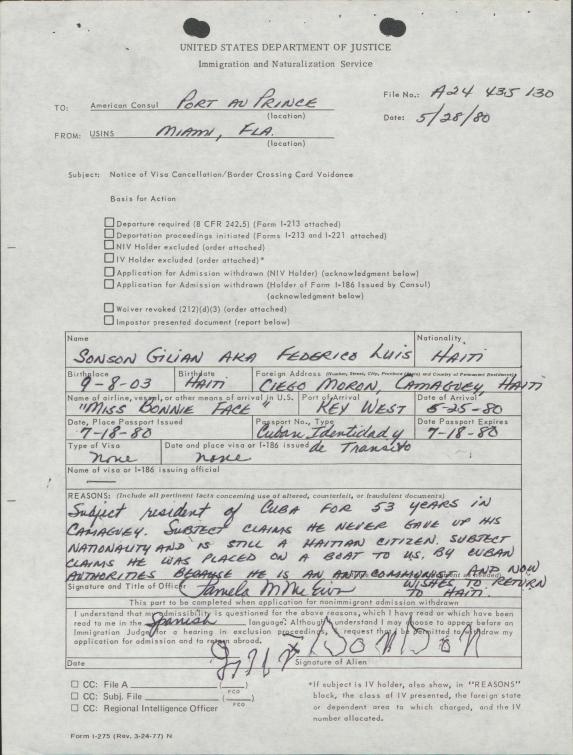 UNITED STATES DEPARTMENT OF JUSTICE
Immigration and Naturalization Service
File No.: A24 435 130
TO: American Consul PORT AU PRINCE
(location)
Date: 5/28/80
FROM: USINS MIAMI, FLA.
(location)
Subject: Notice of Visa Cancellation/Border Crossing Card Voidance
Basis for Action
☐ Departure required (8 CFR 242.5) (Form I-213 attached)
☐ Deportation proceedings initiated (Forms I-213 and I-221 attached)
☐ NIV Holder excluded (order attached)
☐ IV Holder excluded (order attached)*
☐ Application for Admission withdrawn (NIV Holder) (acknowledgment below)
☐ Application for Admission withdrawn (Holder of Form I-186 Issued by Consul)
(acknowledgment below)
☐ Waiver revoked (212)(d)(3) (order attached)
☐ Impostor presented document (report below)
Name Nationality
SONSON GILIAN AKA FEDERICO LUIS HAITI
Birthplace Birthdate Foreign Address (Number, Street, City, Province (State) and Country of Permanent Residence)
9-8-03 HAITI CIEGO MORON, CAMAGUEY, HAITI
Name of airline, vessel, or other means of arrival in U.S. Port of Arrival Date of Arrival
"MISS BONNIE FACE" KEY WEST 5-25-80
Date, Place Passport Issued Passport No., Type Date Passport Expires
7-18-80 Cuban Identidad y 7-18-80
Type of Visa Date and place visa or I-186 issued de Transito
none none
Name of visa or I-186 issuing official
REASONS: (Include all pertinent facts concerning use of altered, counterfeit, or fraudulent documents)
Subject resident of CUBA FOR 53 YEARS IN
CAMAGUEY. SUBJECT CLAIMS HE NEVER GAVE UP HIS
NATIONALITY AND IS STILL A HAITIAN CITIZEN. SUBJECT
CLAIMS HE WAS PLACED ON A BOAT TO US. BY CUBAN
AUTHORITIES BECAUSE HE IS AN ANTI COMMUNIST AND NOW
WISHES TO RETURN
Signature and Title of Officer Pamela TO HAITI.
This part to be completed when application for nonimmigrant admission withdrawn
I understand that my admissibility is questioned for the above reasons, which I have read or which have been
read to me in the Spanish language. Although I understand I may choose to appear before an
Immigration Judge for a hearing in exclusion proceedings, I request that I be permitted to withdraw my
application for admission and to return abroad.
Date Signature of Alien
☐ CC: File A ( )
FCO
☐ CC: Subj. File ( )
FCO
☐ CC: Regional Intelligence Officer
*If subject is IV holder, also show, in "REASONS"
block, the class of IV presented, the foreign state
or dependent area to which charged, and the IV
number allocated.
Form I-275 (Rev. 3-24-77) N